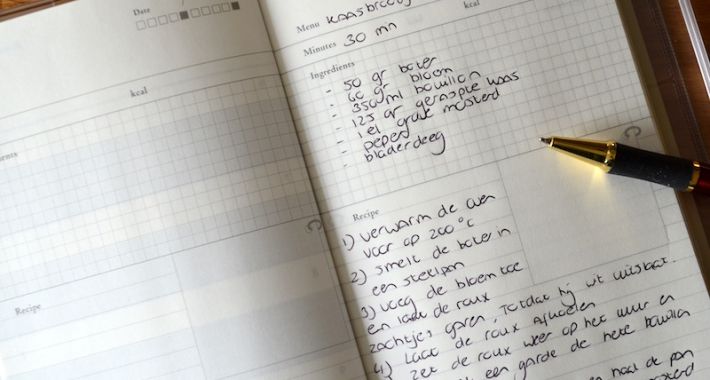 Date
kcal
Recipe
Menu
Minutes 30 mn
kcal
Ingredients
- 50 gr boter
- 60 gr bloem
- 350 ml bouillon
- 125 gr geraspte kaas
- 1 el grove mosterd
- peper
- bladerdeeg
Recipe
1) verwarm de oven
voor op 200 °C
2) smelt de boter in
een steelpan
3) voeg de bloem toe
en laat de roux
zachtjes garen, totdat hij wit uitslaat.
4) Laat de roux afkoelen
zet de roux weer op het vuur en
een garde de hete bouillon
de pan